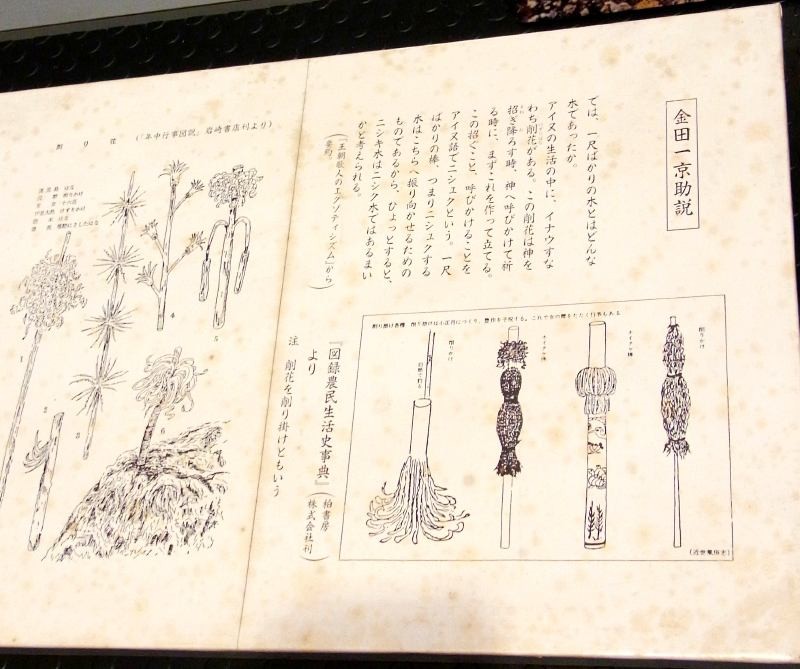 金田一京助説
では、一尺ばかりの木とはどんな
木であったか。
アイヌの生活の中に、イナウすな
わち削花がある。この削花は神を
招ぎ降ろす時、神へ呼びかけて祈
る時に、まずこれを作って立てる。
この招ぐこと、呼びかけることを
アイヌ語でニシュクという。一尺
ばかりの棒、つまりニシュクする
木はこちらへ振り向かせるための
ものであるから、ひょっとすると、
ニシキ木はニシク木ではあるまい
かと考えられる。
(『王朝歌人のエクゾティシズム』から
要約)
削り掛け各種 削り掛けは小正月につくり、豊作を予祝する。これで女の腰をたたく行事もある
削りかけ
削りかけ
(近世風俗志)
『図録農民生活史事典』
(柏書房
株式会社刊)
より
注 削花を削り掛けともいう
削り花 (『年中行事図説』岩崎書店刊より)
1
2
3
4
5
6